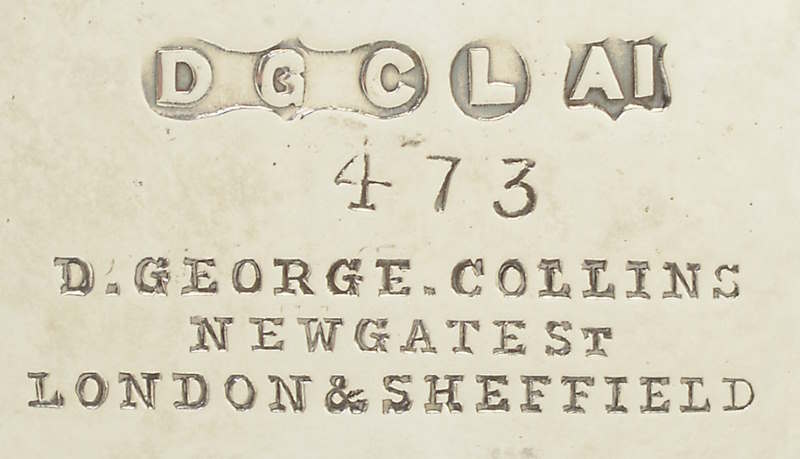 DGC L AI
473
D.GEORGE.COLLINS
NEWGATEST
LONDON&SHEFFIELD